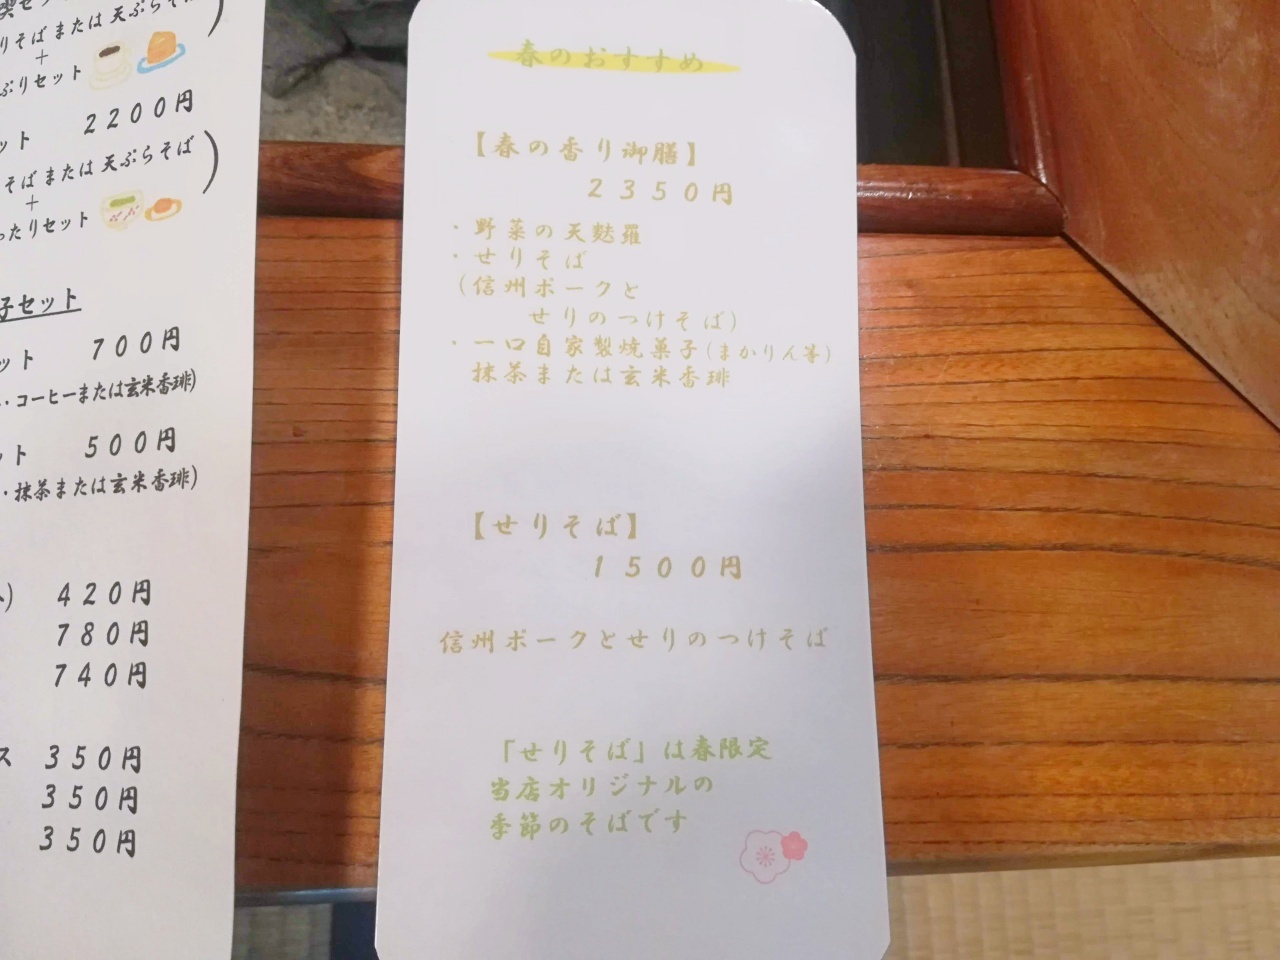 りそば または 天ぷらそば
+
ぷりセット
ット 2200円
そば または 天ぷらそば)
+
ったりセット
子セット
ット 700円
・コーヒーまたは玄米香琲)
ット 500円
・抹茶または玄米香琲)
420円
780円
740円
ス 350円
350円
350円
春のおすすめ
【春の香り御膳】
2350円
・野菜の天麩羅
・せりそば
(信州ポークと
せりのつけそば)
・一口自家製焼菓子(まかりん等)
抹茶または玄米香琲
【せりそば】
1500円
信州ポークとせりのつけそば
「せりそば」は春限定
当店オリジナルの
季節のそばです